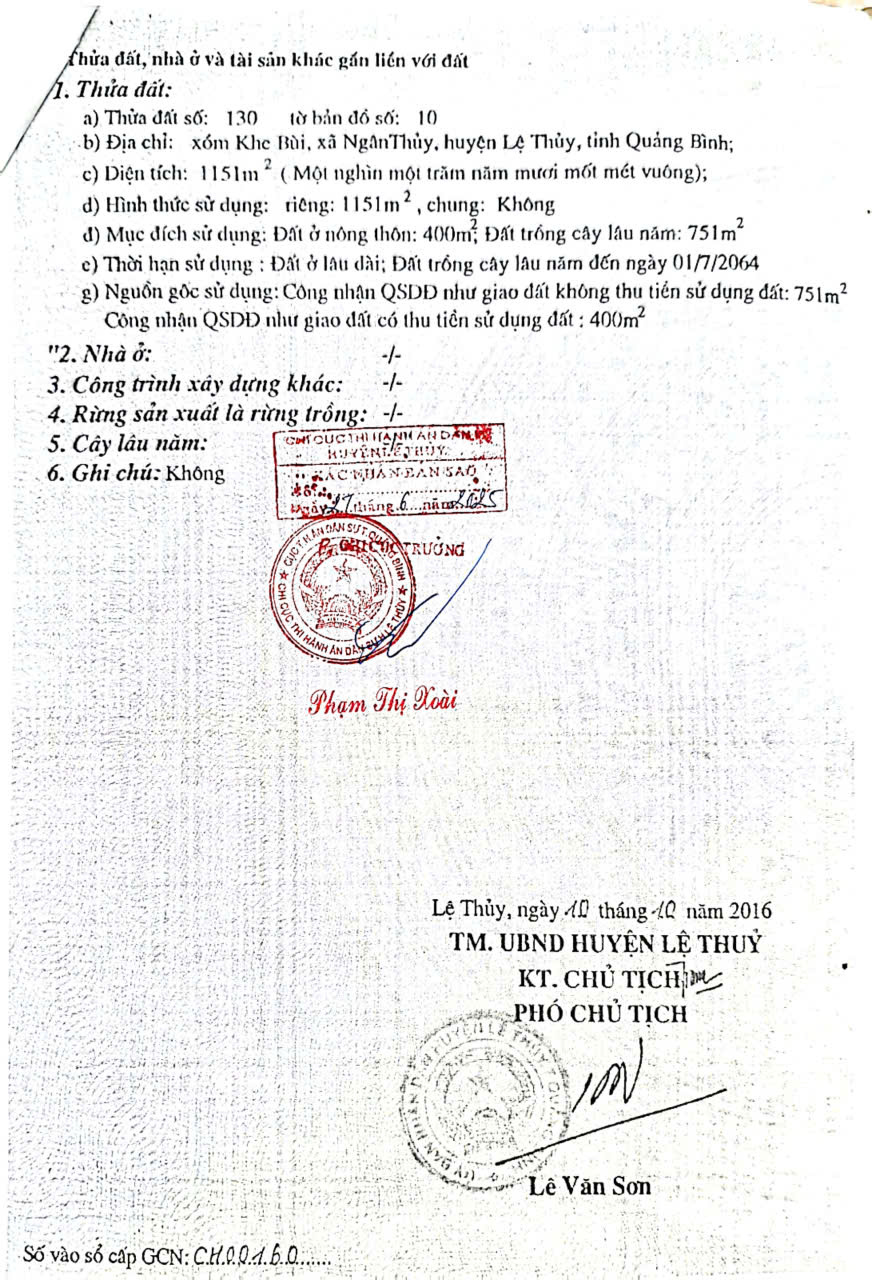 Thửa đất, nhà ở và tài sản khác gắn liền với đất
1. Thửa đất:
a) Thửa đất số: 130 tờ bản đồ số: 10
b) Địa chỉ: xóm Khe Bùi, xã NgânThủy, huyện Lệ Thủy, tỉnh Quảng Bình;
c) Diện tích: 1151m² ( Một nghìn một trăm năm mươi mốt mét vuông);
d) Hình thức sử dụng: riêng: 1151m², chung: Không
đ) Mục đích sử dụng: Đất ở nông thôn: 400m²; Đất trồng cây lâu năm: 751m²
e) Thời hạn sử dụng : Đất ở lâu dài; Đất trồng cây lâu năm đến ngày 01/7/2064
g) Nguồn gốc sử dụng: Công nhận QSDĐ như giao đất không thu tiền sử dụng đất: 751m²
Công nhận QSDĐ như giao đất có thu tiền sử dụng đất : 400m²
"2. Nhà ở: -/-
3. Công trình xây dựng khác: -/-
4. Rừng sản xuất là rừng trồng: -/-
5. Cây lâu năm:
6. Ghi chú: Không
CHI CỤC THI HÀNH ÁN DÂN SỰ
HUYỆN LỆ THỦY
XÁC NHẬN BẢN SAO
Số:
Ngày 27 tháng 6 năm 2025
P. CHI CỤC TRƯỞNG
CỤC T.H ÁN DÂN SỰ T. QUẢNG BÌNH
CHI CỤC THI HÀNH ÁN DÂN SỰ H. LỆ THỦY
Phạm Thị Xoài
Lệ Thủy, ngày 10 tháng 10 năm 2016
TM. UBND HUYỆN LỆ THUỶ
KT. CHỦ TỊCH
PHÓ CHỦ TỊCH
ỦY BAN NHÂN DÂN HUYỆN LỆ THỦY
Lê Văn Sơn
Số vào sổ cấp GCN: CH00160......